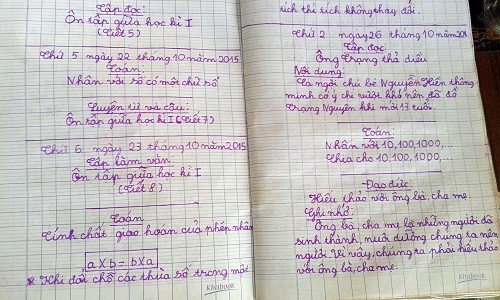 Tập đọc:
Ôn tập giữa học kì I
(Tiết 5)
Thứ 5 ngày 22 tháng 10 năm 2015
Toán:
Nhân với số có một chữ số
Luyện từ và câu:
Ôn tập giữa học kì I (Tiết 7)
Thứ 6 ngày 23 tháng 10 năm 2015
Tập làm văn:
Ôn tập giữa học kì I
(Tiết 8)
Toán
Tính chất giao hoán của phép nhân
a x b = b x a
* Khi đổi chỗ các thừa số trong một
Khobook
tích thì tích không thay đổi.
Thứ 2 ngày 26 tháng 10 năm 201
Tập đọc
Ông Trạng thả diều
Nội dung:
Ca ngợi chú bé Nguyễn Hiền thông
minh có ý chí vượt khó nên đã đỗ
Trạng Nguyên khi mới 13 tuổi.
Toán:
Nhân với 10, 100, 1000, ...
Chia cho 10, 100, 1000, ...
Đạo đức:
Hiếu thảo với ông bà, cha mẹ.
Ghi nhớ:
Ông bà, cha mẹ là những người đã
sinh thành, nuôi dưỡng chúng ta nên
người. Vì vậy, chúng ta phải hiếu thảo
với ông bà, cha mẹ.
Khobook